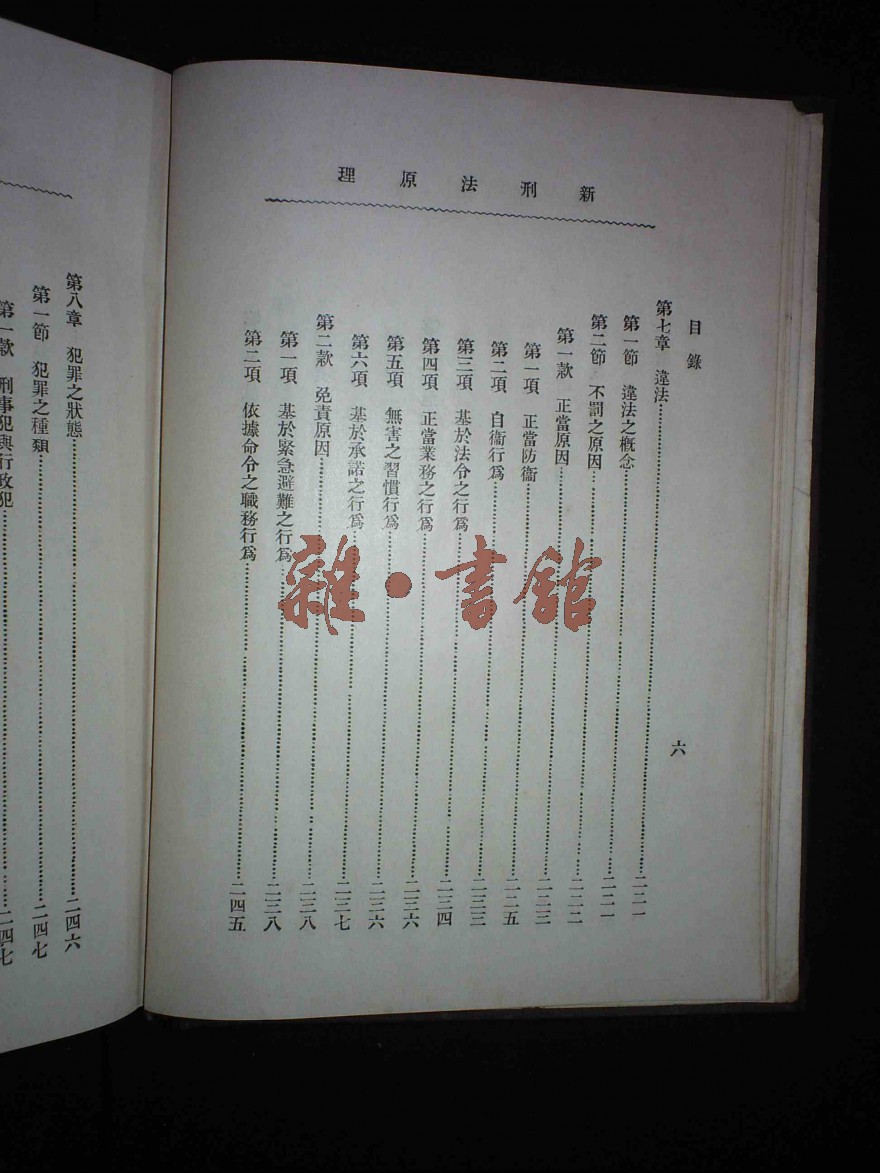 新刑法原理
目錄
六
第七章 違法……二二一
第一節 違法之概念……二二一
第二節 不罰之原因……二二一
第一款 正當原因……二二二
第一項 正當防衞……二二三
第二項 自衞行爲……二二五
第三項 基於法令之行爲……二三三
第四項 正當業務之行爲……二三四
第五項 無害之習慣行爲……二三六
第六項 基於承諾之行爲……二三六
第二款 免責原因……二三七
第一項 基於緊急避難之行爲……二三八
第二項 依據命令之職務行爲……二四五
第八章 犯罪之狀態……二四六
第一節 犯罪之種類……二四七
第一款 刑事犯與行政犯……二四七
雜·書館